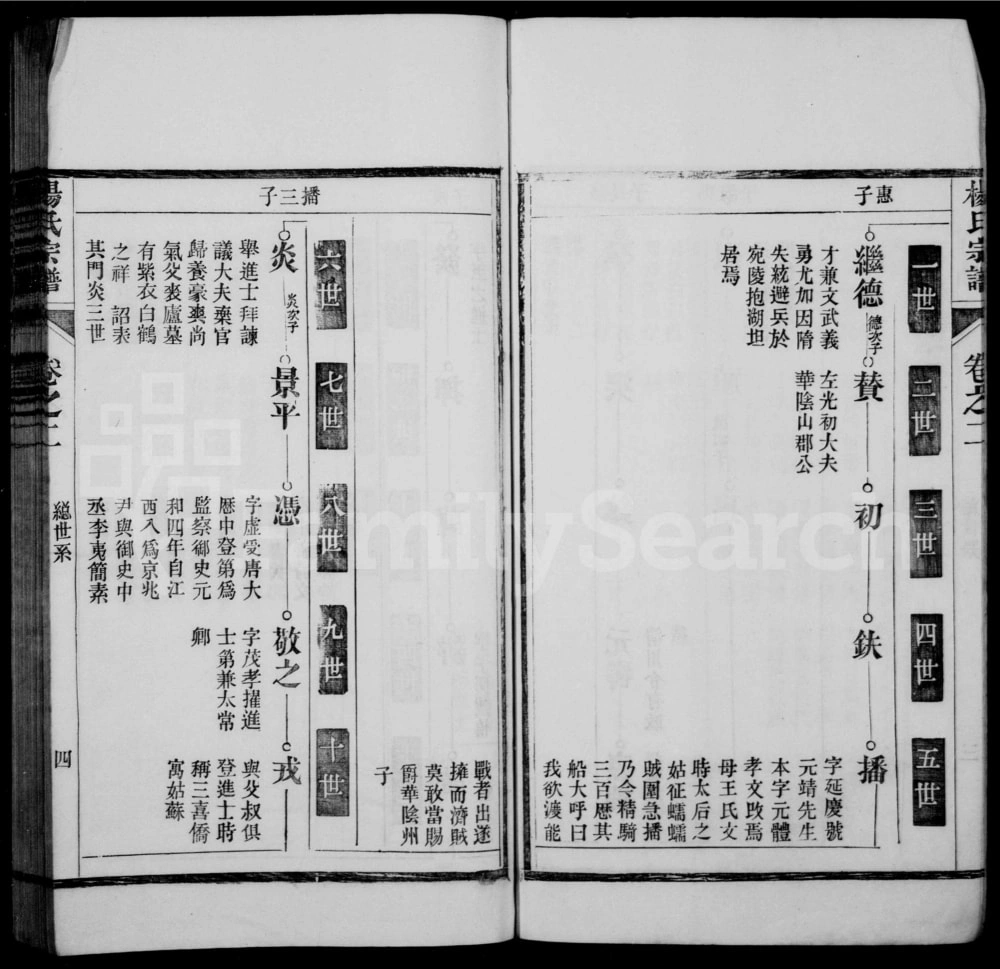 楊氏宗譜
卷之二
惠子
一世
二世
三世
四世
五世
繼德
德次子
贊
初
鈇
播
才兼文武義
勇尤加因隋
失統避兵於
宛陵抱湖坦
居焉
左光初大夫
華陰山郡公
字延慶號
元靖先生
本字元體
孝文改焉
母王氏文
時太后之
姑征蠕蠕
賊圍急播
乃令精騎
三百歷其
船大呼曰
我欲渡能
戰者出遂
擁而濟賊
莫敢當賜
爵華陰州
子
播三子
六世
七世
八世
九世
十世
炎
炎次子
景平
憑
敬之
戎
舉進士拜諫
議大夫棄官
歸養豪爽尚
氣父喪廬墓
有紫衣白鶴
之祥 詔表
其門炎三世
字虛愛唐大
歷中登第爲
監察御史元
和四年自江
西入爲京兆
尹與御史中
丞李夷簡素
字茂孝擢進
士第兼太常
卿
與父叔俱
登進士時
稱三喜僑
寓姑蘇
楊氏宗譜
卷之二
總世系
四
FamilySearch